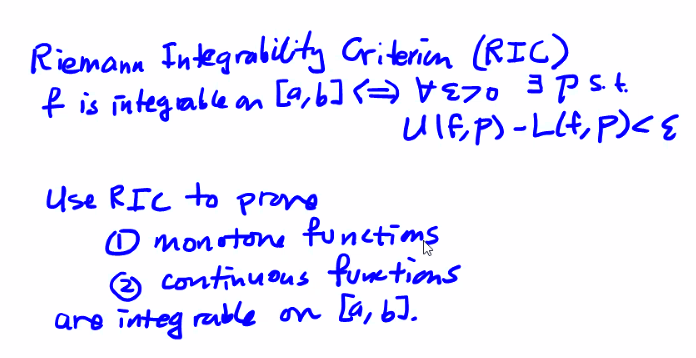 Riemann Integrability Criterion (RIC)
f is integrable on [a,b] <=> ∀ ε>0 ∃ P s.t.
U(f,P) - L(f,P) < ε
Use RIC to prove
① monotone functions
② continuous functions
are integrable on [a,b].